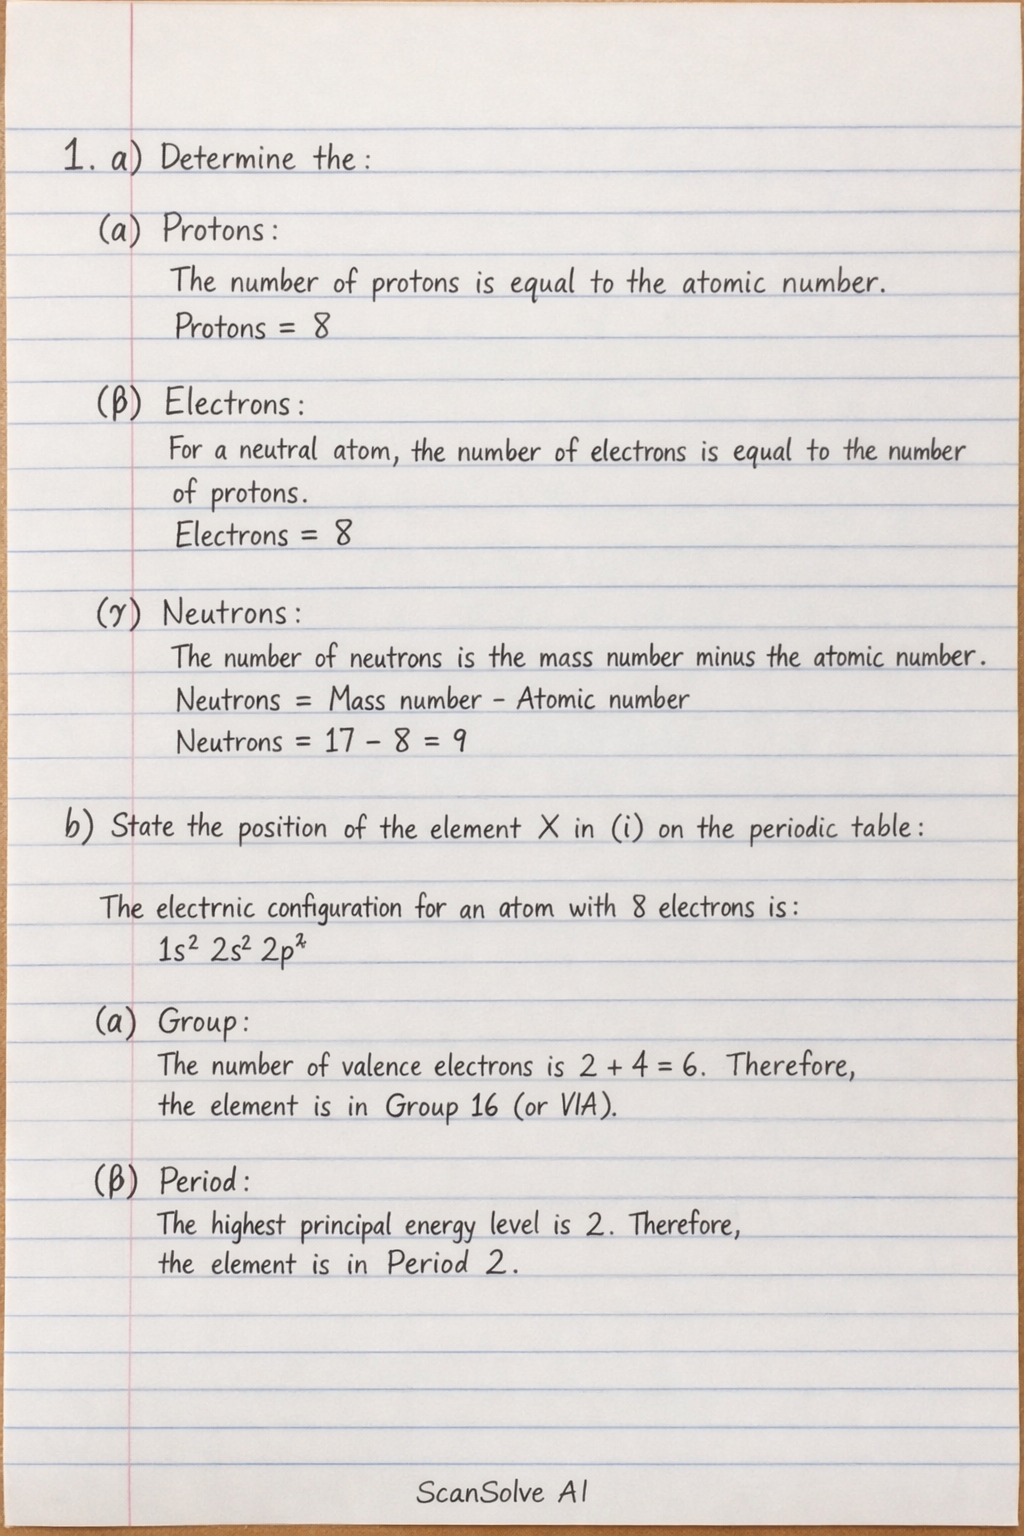 1. a) Determine the:
(a) Protons:
The number of protons is equal to the atomic number.
Protons = 8
(β) Electrons:
For a neutral atom, the number of electrons is equal to the number
of protons.
Electrons = 8
(γ) Neutrons:
The number of neutrons is the mass number minus the atomic number.
Neutrons = Mass number - Atomic number
Neutrons = 17 - 8 = 9
b) State the position of the element X in (i) on the periodic table:
The electrnic configuration for an atom with 8 electrons is:
1s² 2s² 2p
(a) Group:
The number of valence electrons is 2 + 4 = 6. Therefore,
the element is in Group 16 (or VIA).
(β) Period:
The highest principal energy level is 2. Therefore,
the element is in Period 2.
ScanSolve AI